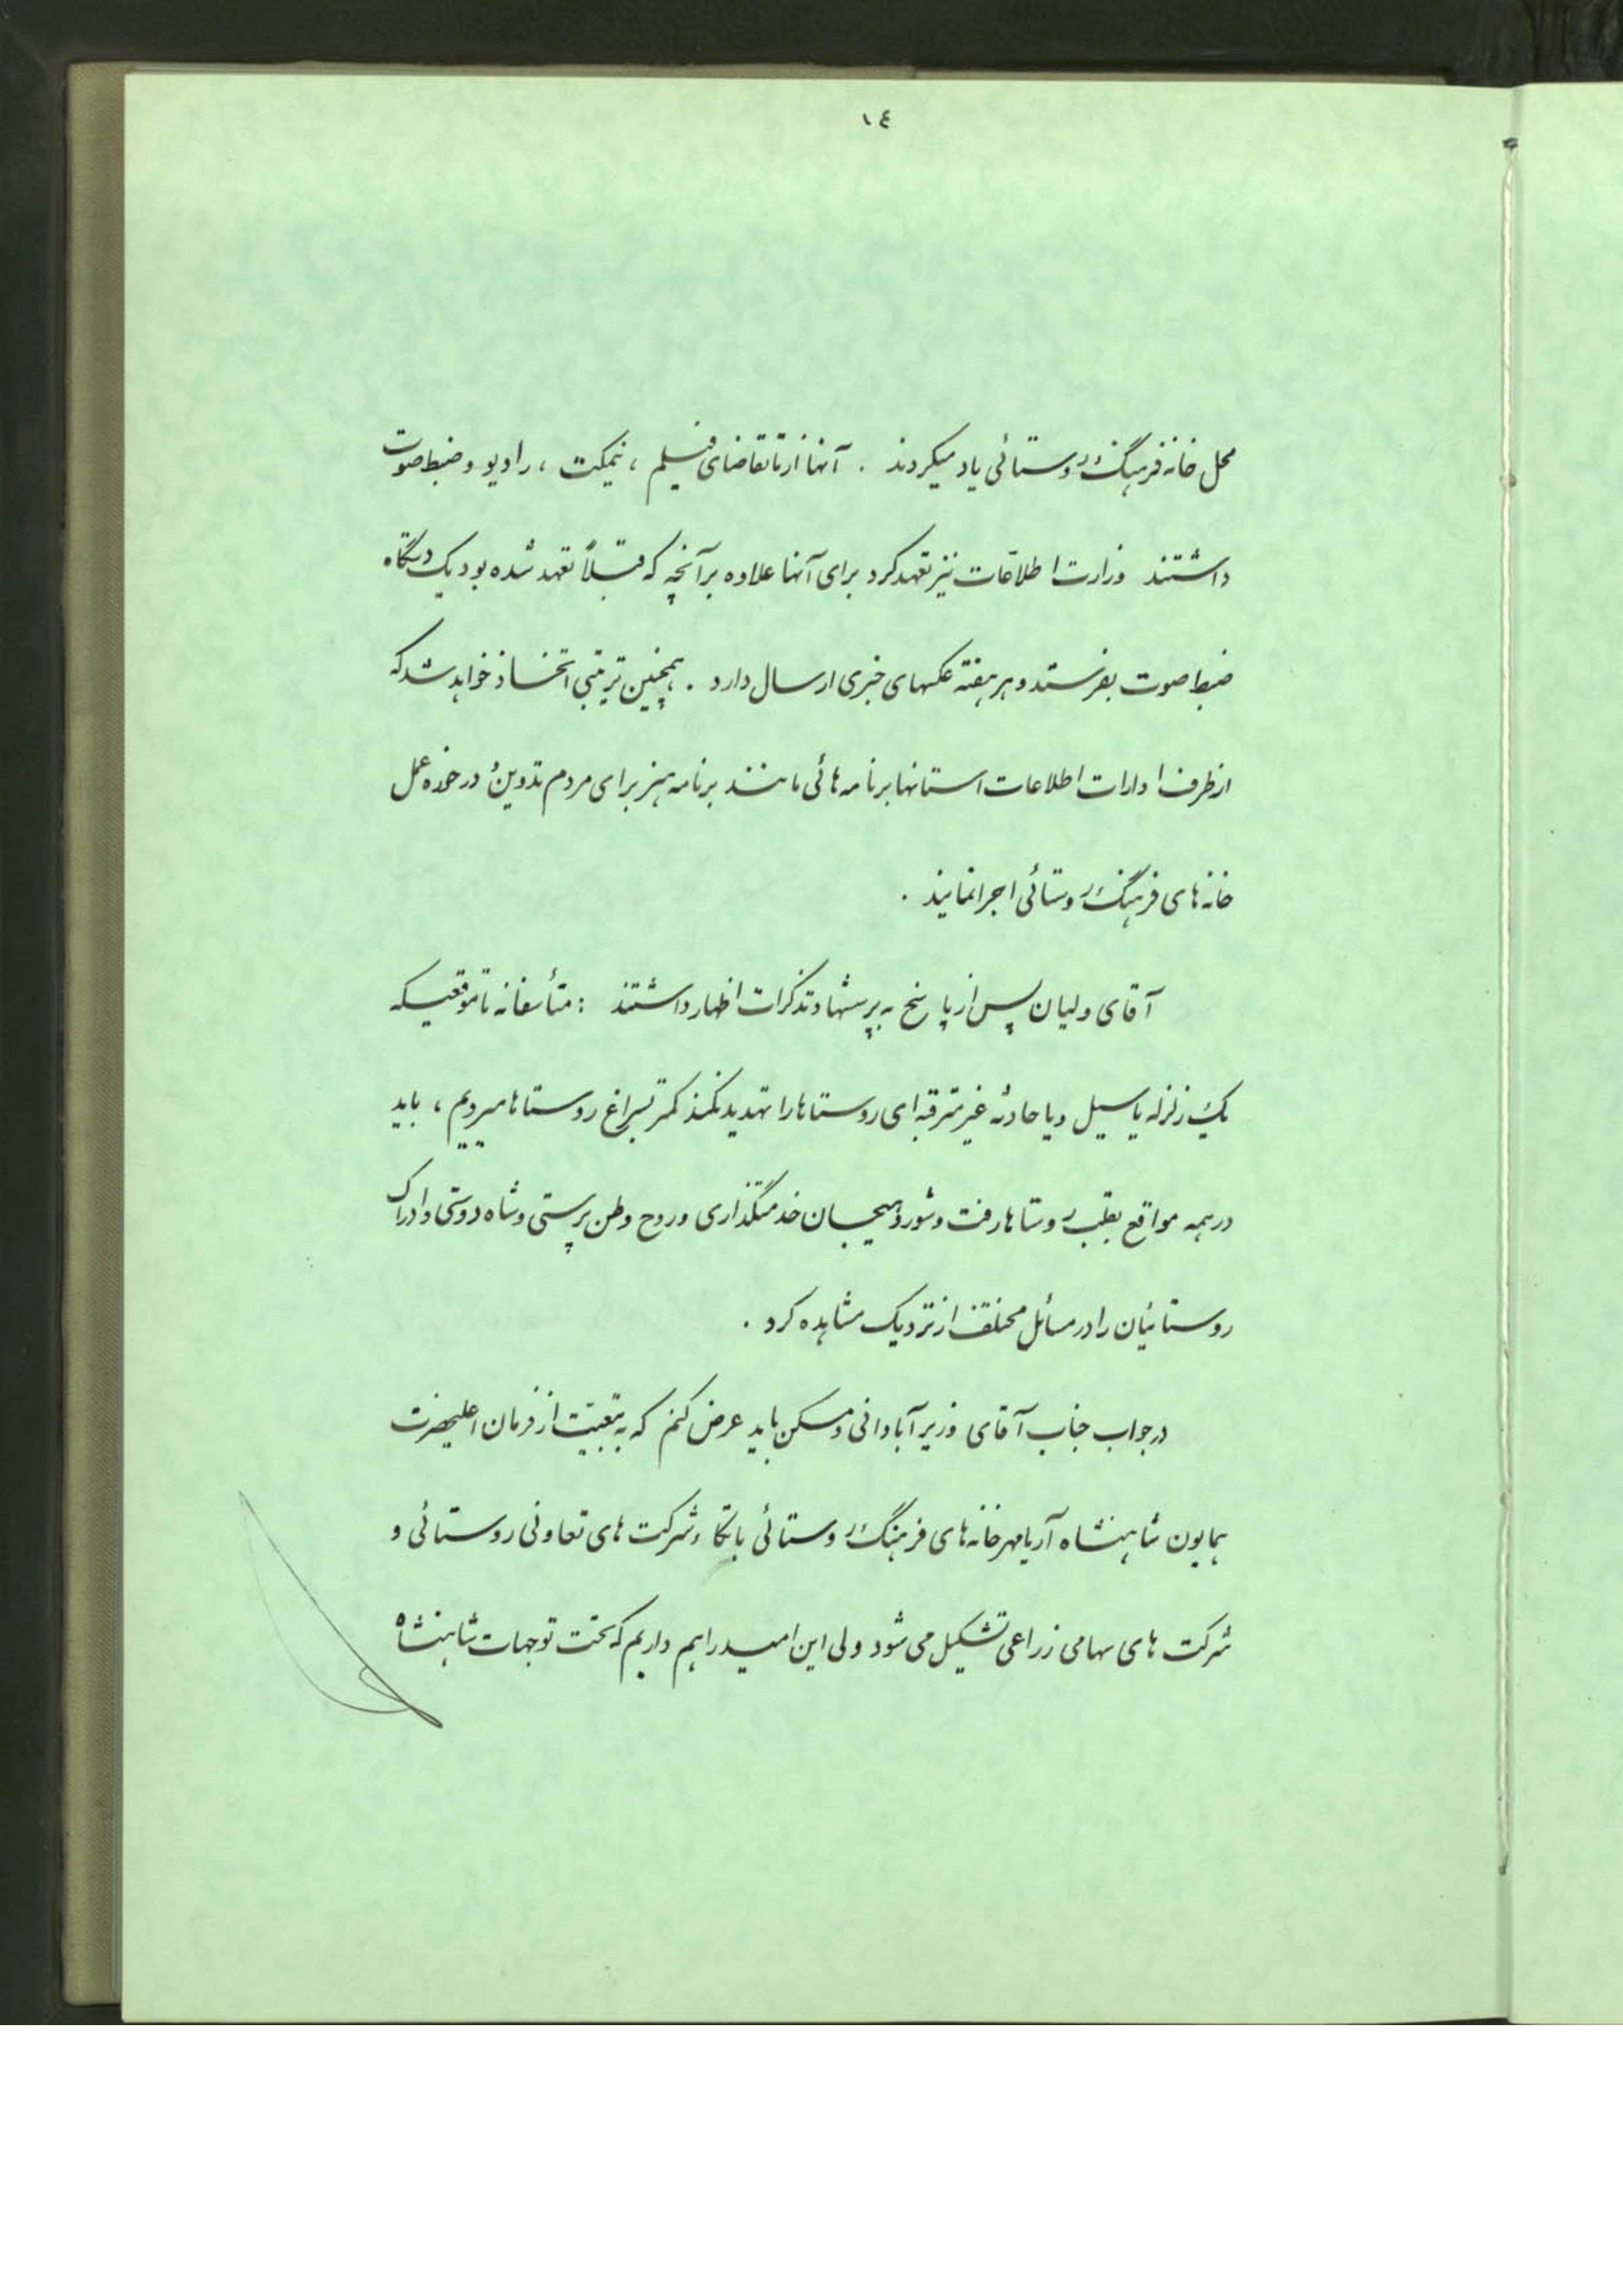 ١٤
محل خانه فرهنگ روستائی یاد میکردند . آنها از ما تقاضای فیلم ، نیمکت ، رادیو و ضبط صوت
داشتند وزارت اطلاعات نیز تعهد کرد برای آنها علاوه بر آنچه که قبلاً تعهد شده بود یک دستگاه
ضبط صوت بفرستد و هر هفته عکسهای خبری ارسال دارد . همچنین ترتیبی اتخاذ خواهد شد که
از طرف ادارات اطلاعات استانها برنامه هائی مانند برنامه هنر برای مردم تدوین و در حوزه عمل
خانه های فرهنگ روستائی اجرا نمایند .
آقای ولیان پس از پاسخ به پرسشها و تذکرات اظهار داشتند : متأسفانه تا موقعیکه
یک زلزله یا سیل و یا حادثه غیر مترقبه ای روستاها را تهدید نکند کمتر بسراغ روستاها میرویم ، باید
در همه مواقع بقلب روستاها رفت و شور و هیجان خدمتگذاری و روح وطن پرستی و شاه دوستی و ادراک
روستائیان را در مسائل مختلف از نزدیک مشاهده کرد .
در جواب جناب آقای وزیر آبادانی و مسکن باید عرض کنم که به تبعیت از فرمان اعلیحضرت
همایون شاهنشاه آریامهر خانه های فرهنگ روستائی با اتکاء شرکت های تعاونی روستائی و
شرکت های سهامی زراعی تشکیل می شود ولی این امید را هم داریم که تحت توجهات شاهنشاه